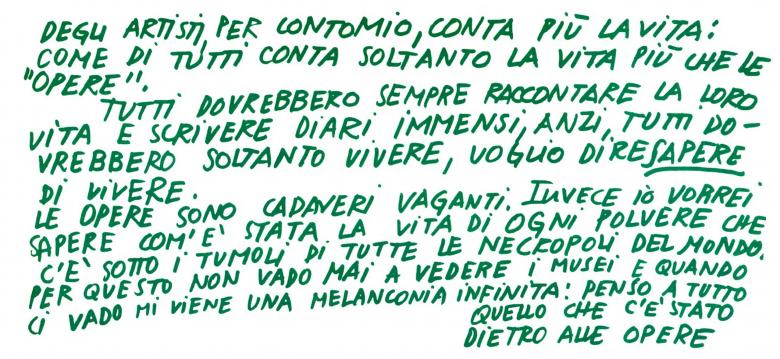 DEGLI ARTISTI, PER CONTO MIO, CONTA PIÙ LA VITA:
COME DI TUTTI CONTA SOLTANTO LA VITA PIÙ CHE LE
"OPERE".
TUTTI DOVREBBERO SEMPRE RACCONTARE LA LORO
VITA E SCRIVERE DIARI IMMENSI, ANZI, TUTTI DO-
VREBBERO SOLTANTO VIVERE, VOGLIO DIRE SAPERE
DI VIVERE.
LE OPERE SONO CADAVERI VAGANTI. INVECE IO VORREI
SAPERE COM'E' STATA LA VITA DI OGNI POLVERE CHE
C'E' SOTTO I TUMOLI DI TUTTE LE NECROPOLI DEL MONDO.
PER QUESTO NON VADO MAI A VEDERE I MUSEI E QUANDO
CI VADO MI VIENE UNA MELANCONIA INFINITA: PENSO A TUTTO
QUELLO CHE C'E' STATO
DIETRO ALLE OPERE